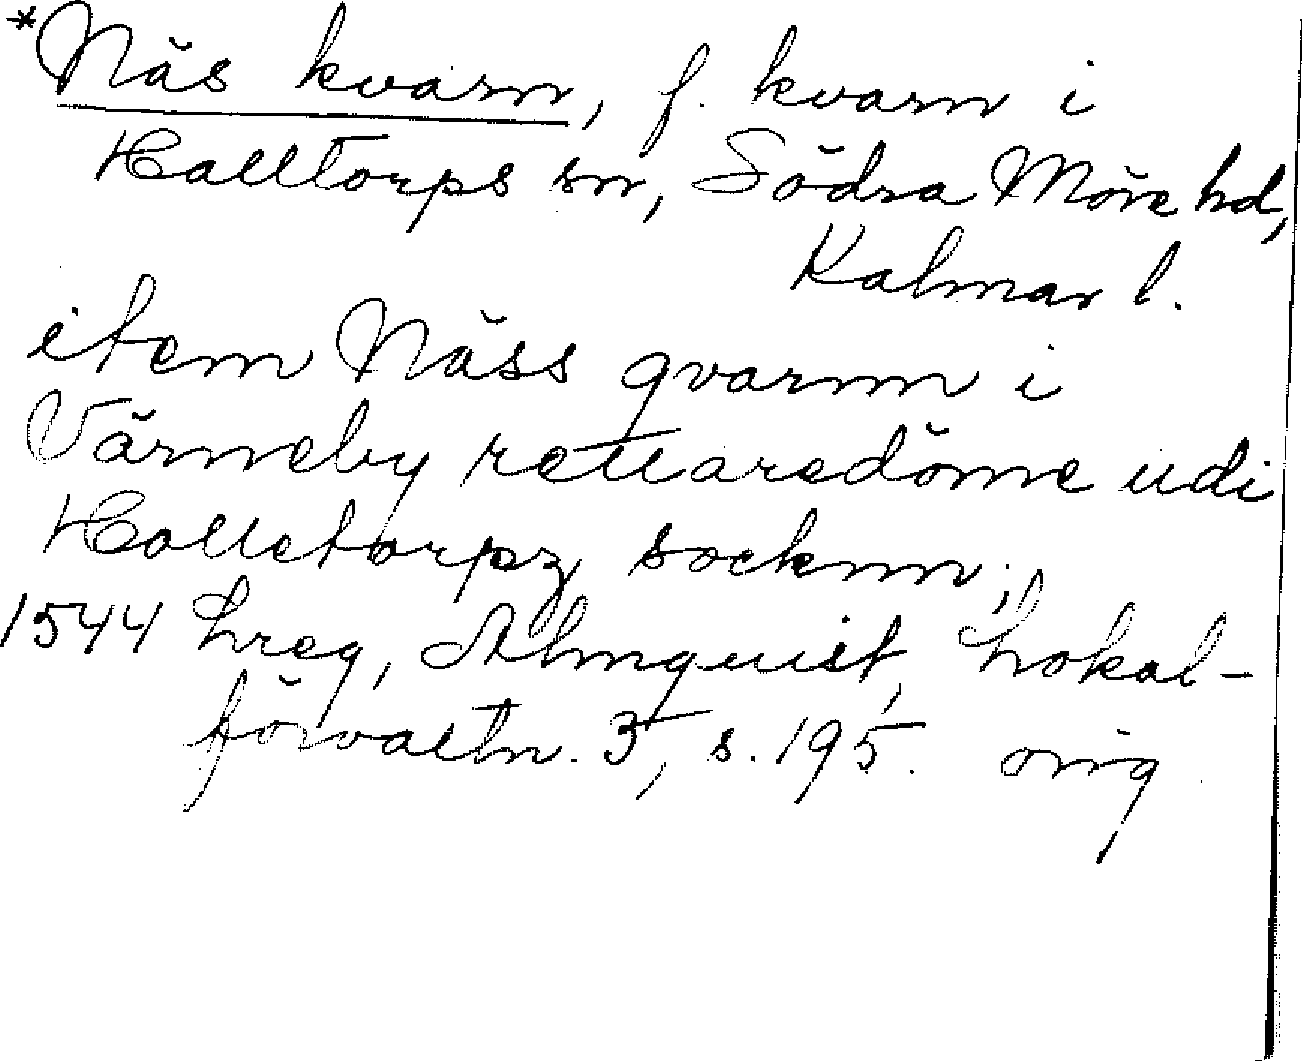 *Näs kvarn, f. kvarn i
Halltorps sn, Södra Möre hd,
Kalmar l.
item Näss qvarnn i
Värneby rettaredöme udi
Halletorpz socknn;
1544 Lreg, Almquist, Lokal-
förvaltn. 3, s. 195. orig